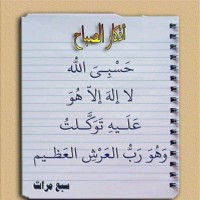 أذكار الصباح
حَسْبِيَ الله
لا إلهَ إلاّ هُوَ
عَلَـيهِ تَوَكَّـلتُ
وَهُوَ رَبُّ العَرْشِ العَظـيم
سبع مرات